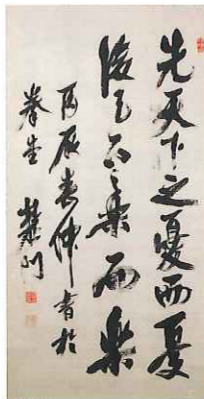 先天下之憂而憂
後天下之樂而樂
丙辰春仲書於
拳生